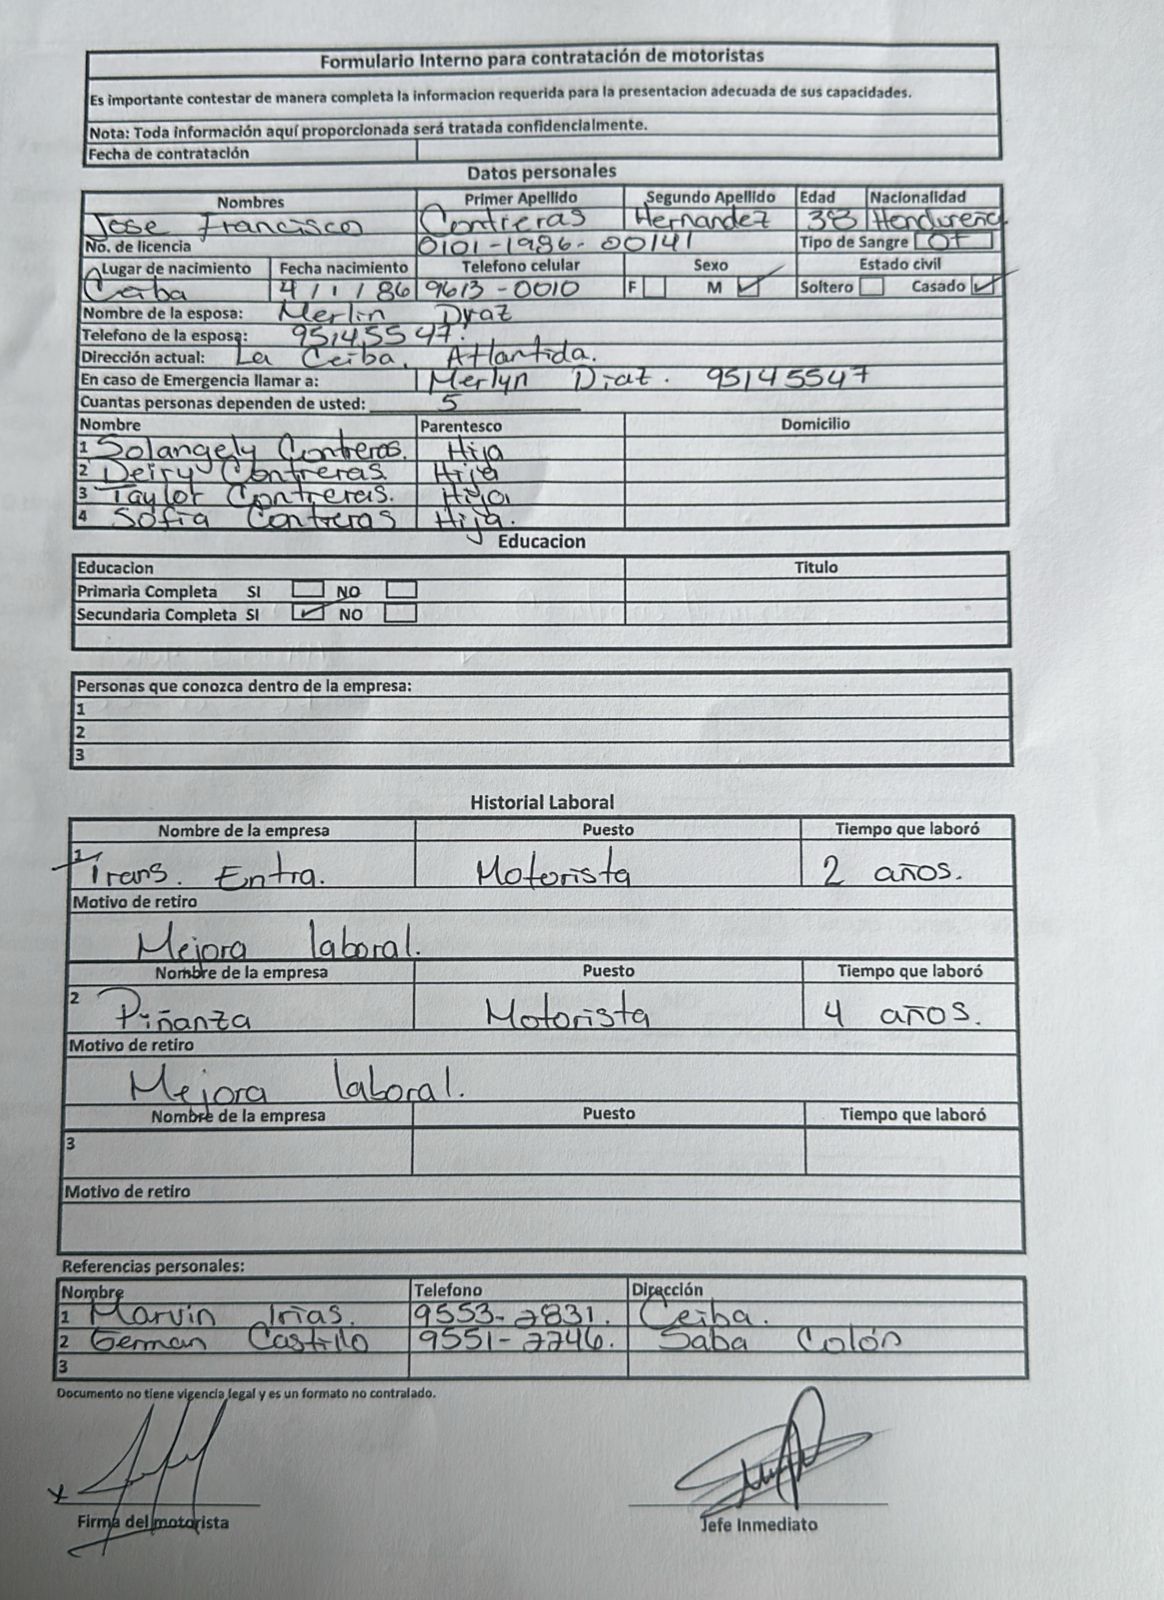 Formulario Interno para contratación de motoristas
Es importante contestar de manera completa la informacion requerida para la presentacion adecuada de sus capacidades.
Nota: Toda información aquí proporcionada será tratada confidencialmente.
Fecha de contratación
Datos personales
Nombres Primer Apellido Segundo Apellido Edad Nacionalidad
Jose Francisco Contreras Hernandez 38 Hondureña
No. de licencia 0101-1986-00141 Tipo de Sangre O+
Lugar de nacimiento Fecha nacimiento Telefono celular Sexo Estado civil
Ceiba 4/1/86 9613-0010 F M Soltero Casado
Nombre de la esposa: Merlin Diaz
Telefono de la esposa: 95145547.
Dirección actual: La Ceiba, Atlantida.
En caso de Emergencia llamar a: Merlyn Diaz. 95145547
Cuantas personas dependen de usted: 5
Nombre Parentesco Domicilio
1 Solangely Contreras. Hija
2 Deiry Contreras. Hija
3 Taylor Contreras. Hija
4 Sofia Contreras Hija.
Educacion
Educacion Titulo
Primaria Completa SI NO
Secundaria Completa SI NO
Personas que conozca dentro de la empresa:
1
2
3
Historial Laboral
Nombre de la empresa Puesto Tiempo que laboró
1 Trans. Entra. Motorista 2 años.
Motivo de retiro
Mejora laboral.
Nombre de la empresa Puesto Tiempo que laboró
2 Piñanza Motorista 4 años.
Motivo de retiro
Mejora laboral.
Nombre de la empresa Puesto Tiempo que laboró
3
Motivo de retiro
Referencias personales:
Nombre Telefono Dirección
1 Marvin Irias. 9553-2831. Ceiba.
2 German Castillo 9551-7746. Saba Colón
3
Documento no tiene vigencia legal y es un formato no contralado.
x
Firma del motorista Jefe Inmediato